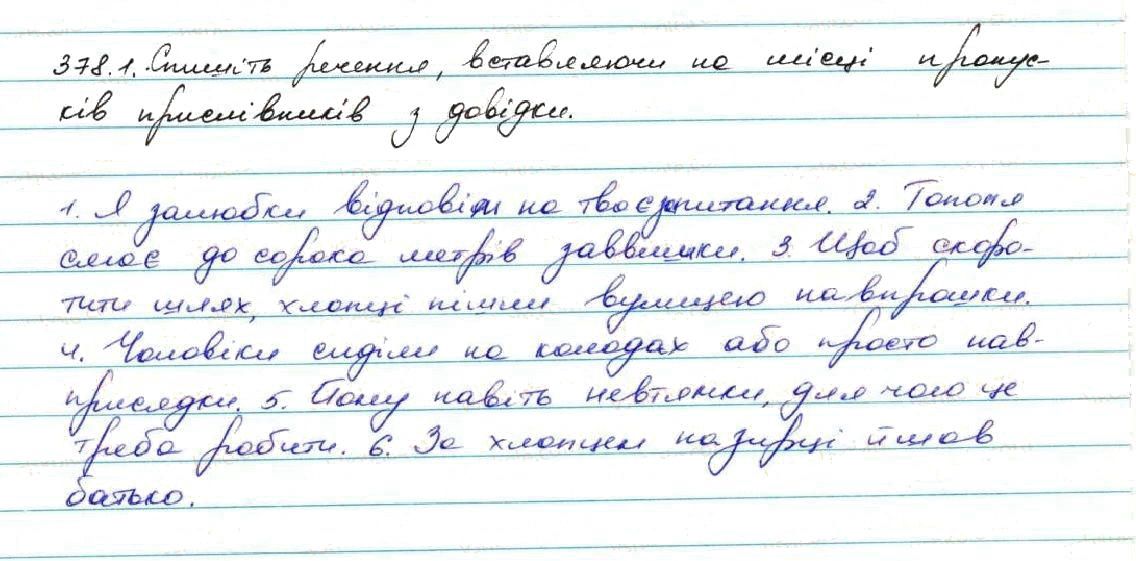 378.1. Спишіть речення, вставляючи на місці пропус-
ків прислівників з довідки.
1. Я залюбки відповім на твоє запитання. 2. Тополя
сягає до сорока метрів заввишки. 3. Щоб скоро-
тити шлях, хлопці пішли вулицею навпрошки.
4. Чоловіки сиділи на колодах або просто нав-
присядки. 5. Йому навіть невтямки, для чого це
треба робити. 6. За хлопцем назирці йшов
батько.